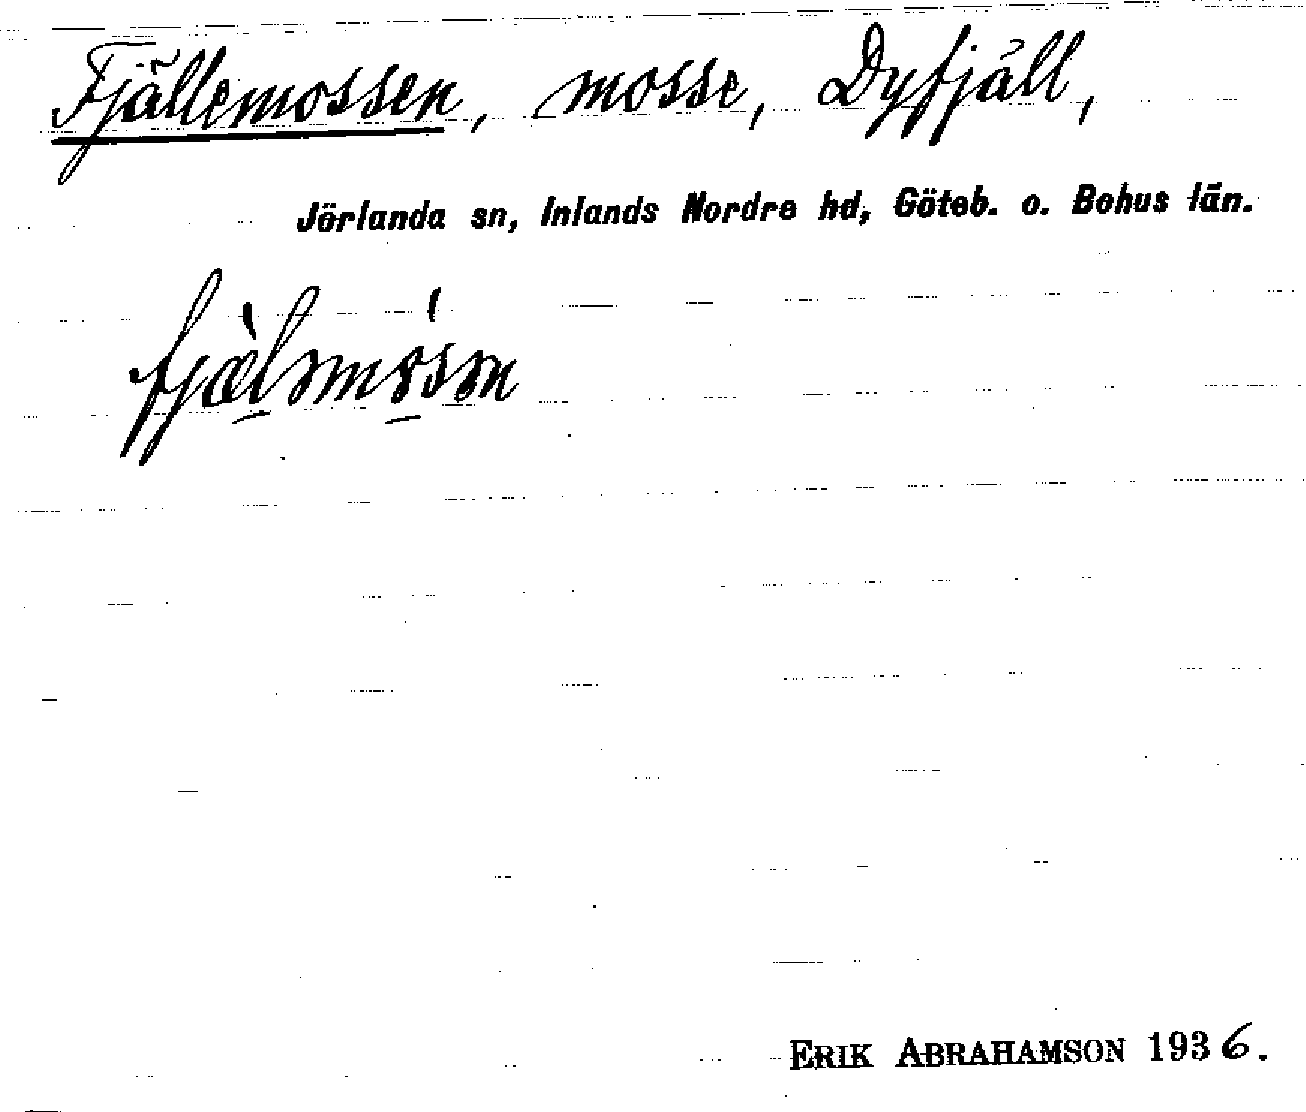 Fjällemossen, mosse, Dyfjäll,
Jörlanda sn, Inlands Nordre hd, Göteb. o. Bohus län.
ERIK ABRAHAMSON 1936.